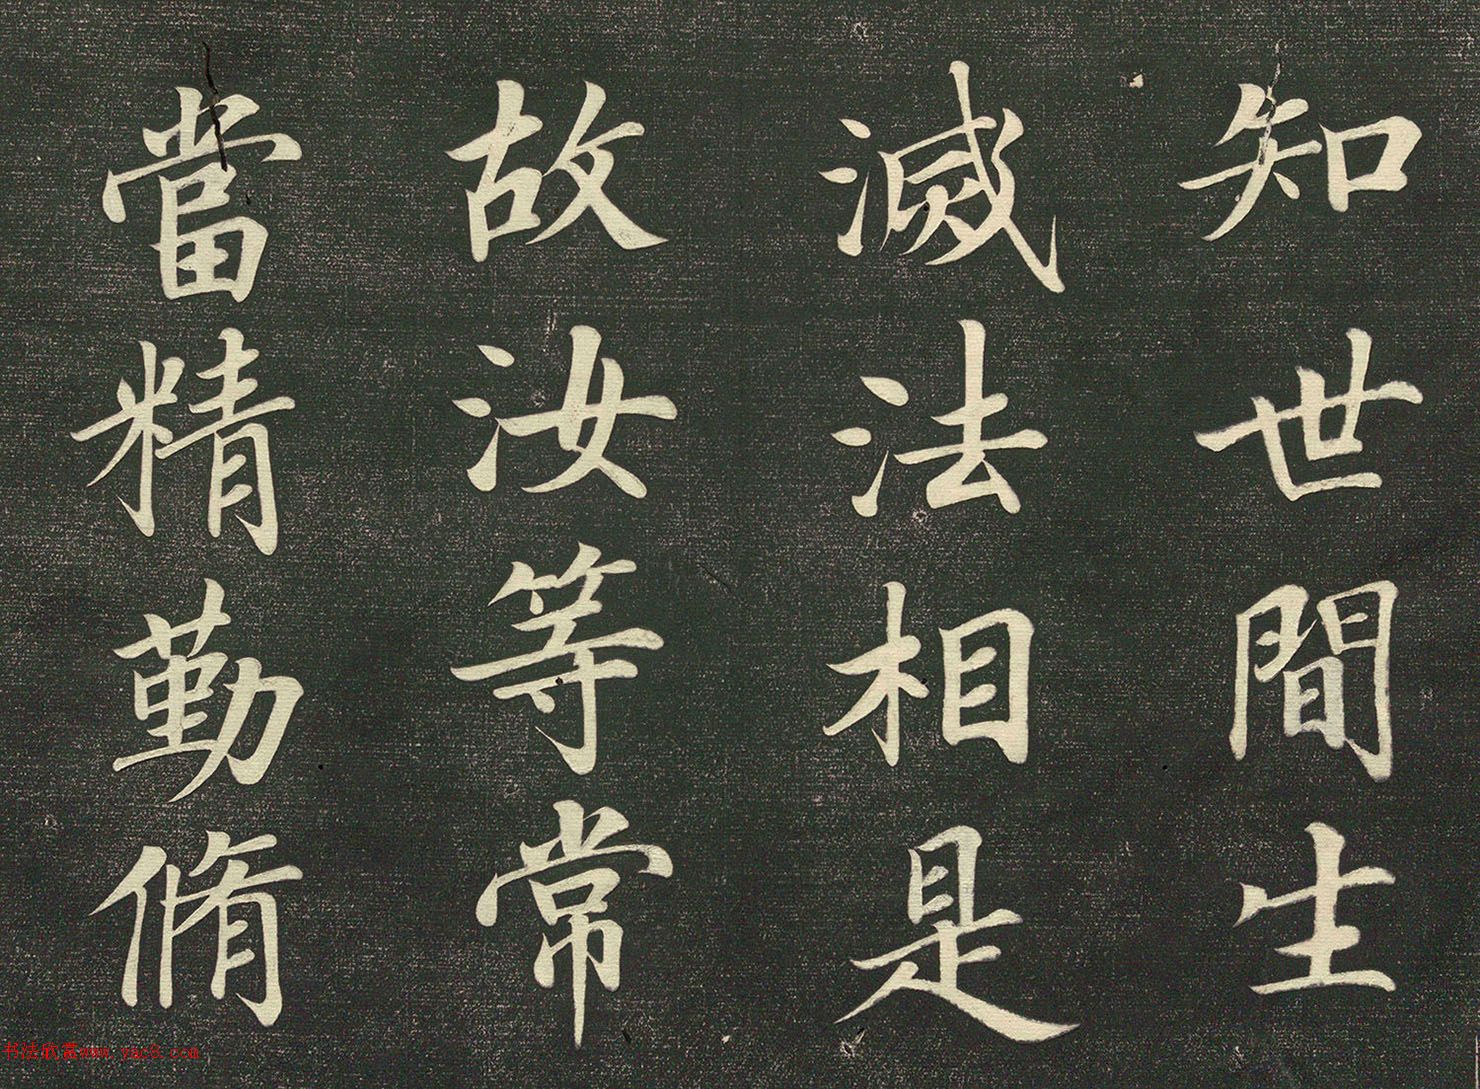 知世間生
滅法相是
故汝等常
當精勤脩
书法欣赏www.yac8.com